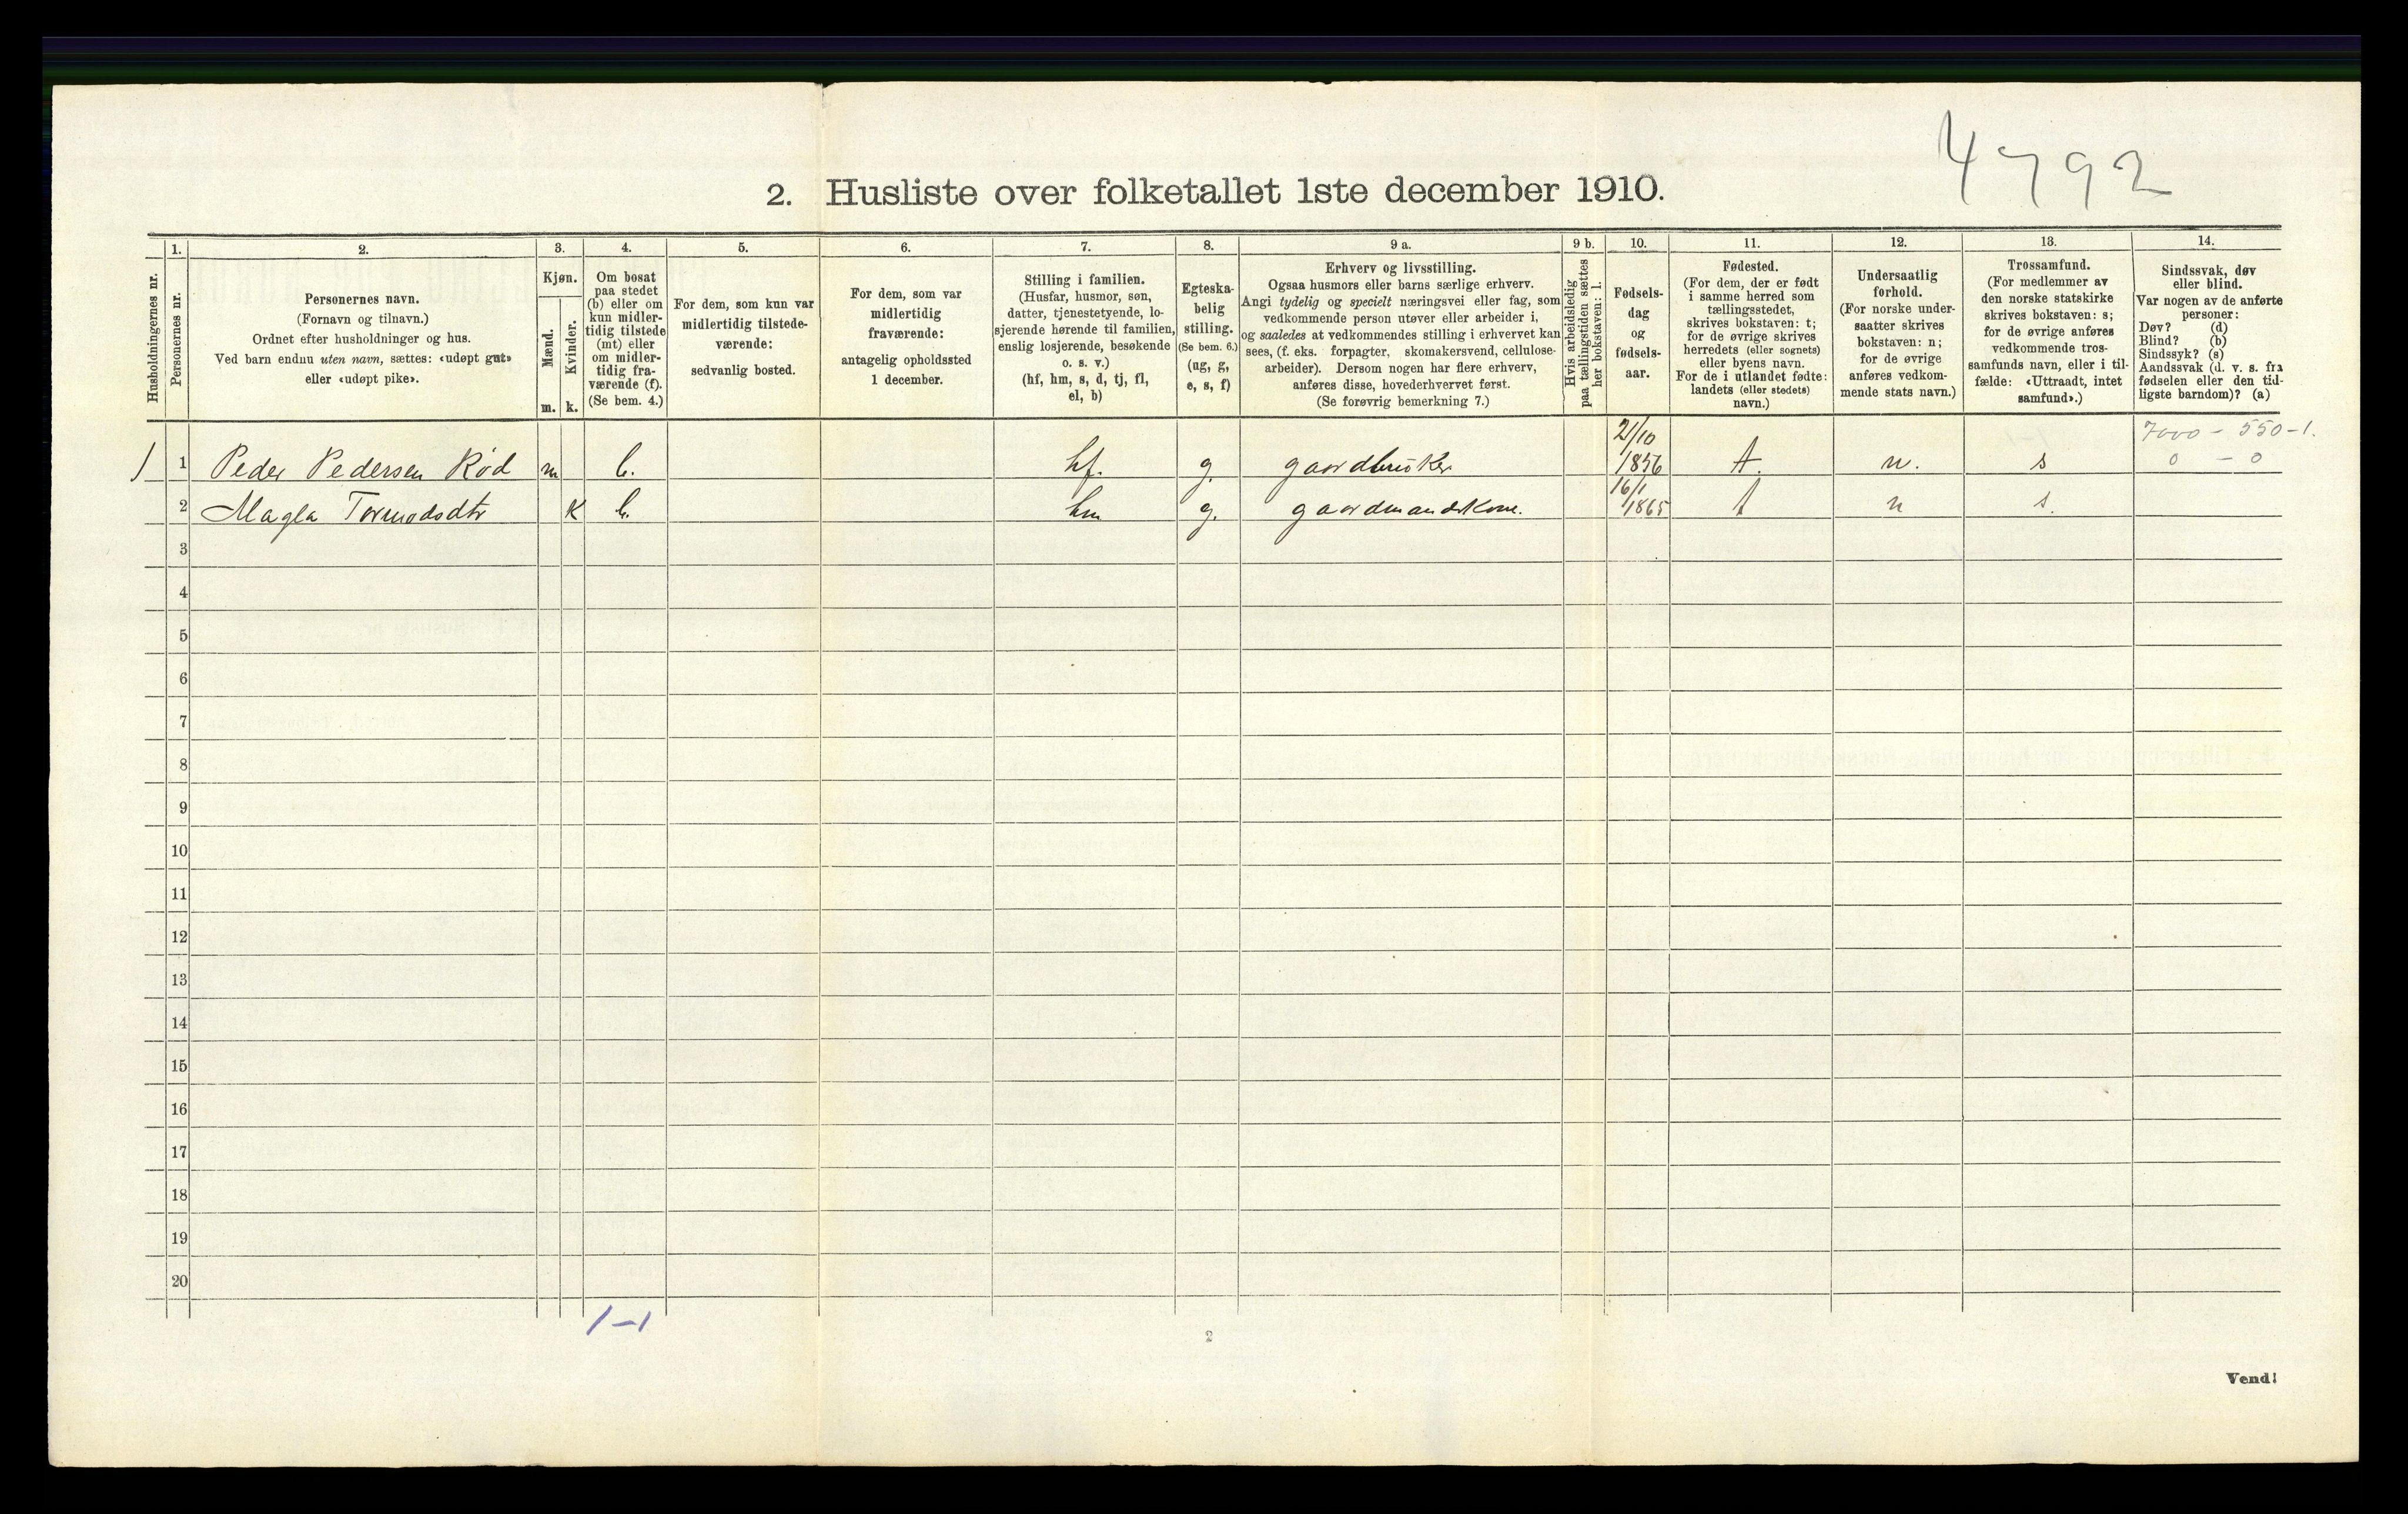 4792
2. Husliste over folketallet 1ste december 1910.
1. 2. 3. 4. 5. 6. 7. 8. 9 a. 9 b. 10. 11. 12. 13. 14.
Husholdningernes nr.
Personernes nr.
Personernes navn.
(Fornavn og tilnavn.)
Ordnet efter husholdninger og hus.
Ved barn endnu uten navn, sættes: «udøpt gut»
eller «udøpt pike».
Kjøn.
Mænd.
Kvinder.
m. k.
Om bosat
paa stedet
(b) eller om
kun midler-
tidig tilstede
(mt) eller
om midler-
tidig fra-
værende (f).
(Se bem. 4.)
For dem, som kun var
midlertidig tilstede-
værende:
sedvanlig bosted.
For dem, som var
midlertidig
fraværende:
antagelig opholdssted
1 december.
Stilling i familien.
(Husfar, husmor, søn,
datter, tjenestetyende, lo-
sjerende hørende til familien,
enslig losjerende, besøkende
o. s. v.)
(hf, hm, s, d, tj, fl,
el, b)
Egteska-
belig
stilling.
(Se bem. 6.)
(ug, g,
e, s, f)
Erhverv og livsstilling.
Ogsaa husmors eller barns særlige erhverv.
Angi tydelig og specielt næringsvei eller fag, som
vedkommende person utøver eller arbeider i,
og saaledes at vedkommendes stilling i erhvervet kan
sees, (f. eks. forpagter, skomakersvend, cellulose-
arbeider). Dersom nogen har flere erhverv,
anføres disse, hovederhvervet først.
(Se forøvrig bemerkning 7.)
Hvis arbeidsledig
paa tællingstiden sættes
her bokstaven: l.
Fødsels-
dag
og
fødsels-
aar.
Fødested.
(For dem, der er født
i samme herred som
tællingsstedet,
skrives bokstaven: t;
for de øvrige skrives
herredets (eller sognets)
eller byens navn.
For de i utlandet fødte:
landets (eller stedets)
navn.)
Undersaatlig
forhold.
(For norske under-
saatter skrives
bokstaven: n;
for de øvrige
anføres vedkom-
mende stats navn.)
Trossamfund.
(For medlemmer av
den norske statskirke
skrives bokstaven: s;
for de øvrige anføres
vedkommende tros-
samfunds navn, eller i til-
fælde: «Uttraadt, intet
samfund».)
Sindssvak, døv
eller blind.
Var nogen av de anførte
personer:
Døv? (d)
Blind? (b)
Sindssyk? (s)
Aandssvak (d. v. s. fra
fødselen eller den tid-
ligste barndom)? (a)
7000 - 550-1.
1 1 Peder Pedersen Rød m b. hf. g. gaardbruker 21/10 1856 t. n. s 0 - 0
2 Magla Tormodsdtr k b. hm g. gaardmandskone. 16/1 1865 t n s.
3
4
5
6
7
8
9
10
11
12
13
14
15
16
17
18
19
20
1-1
2
Vend!